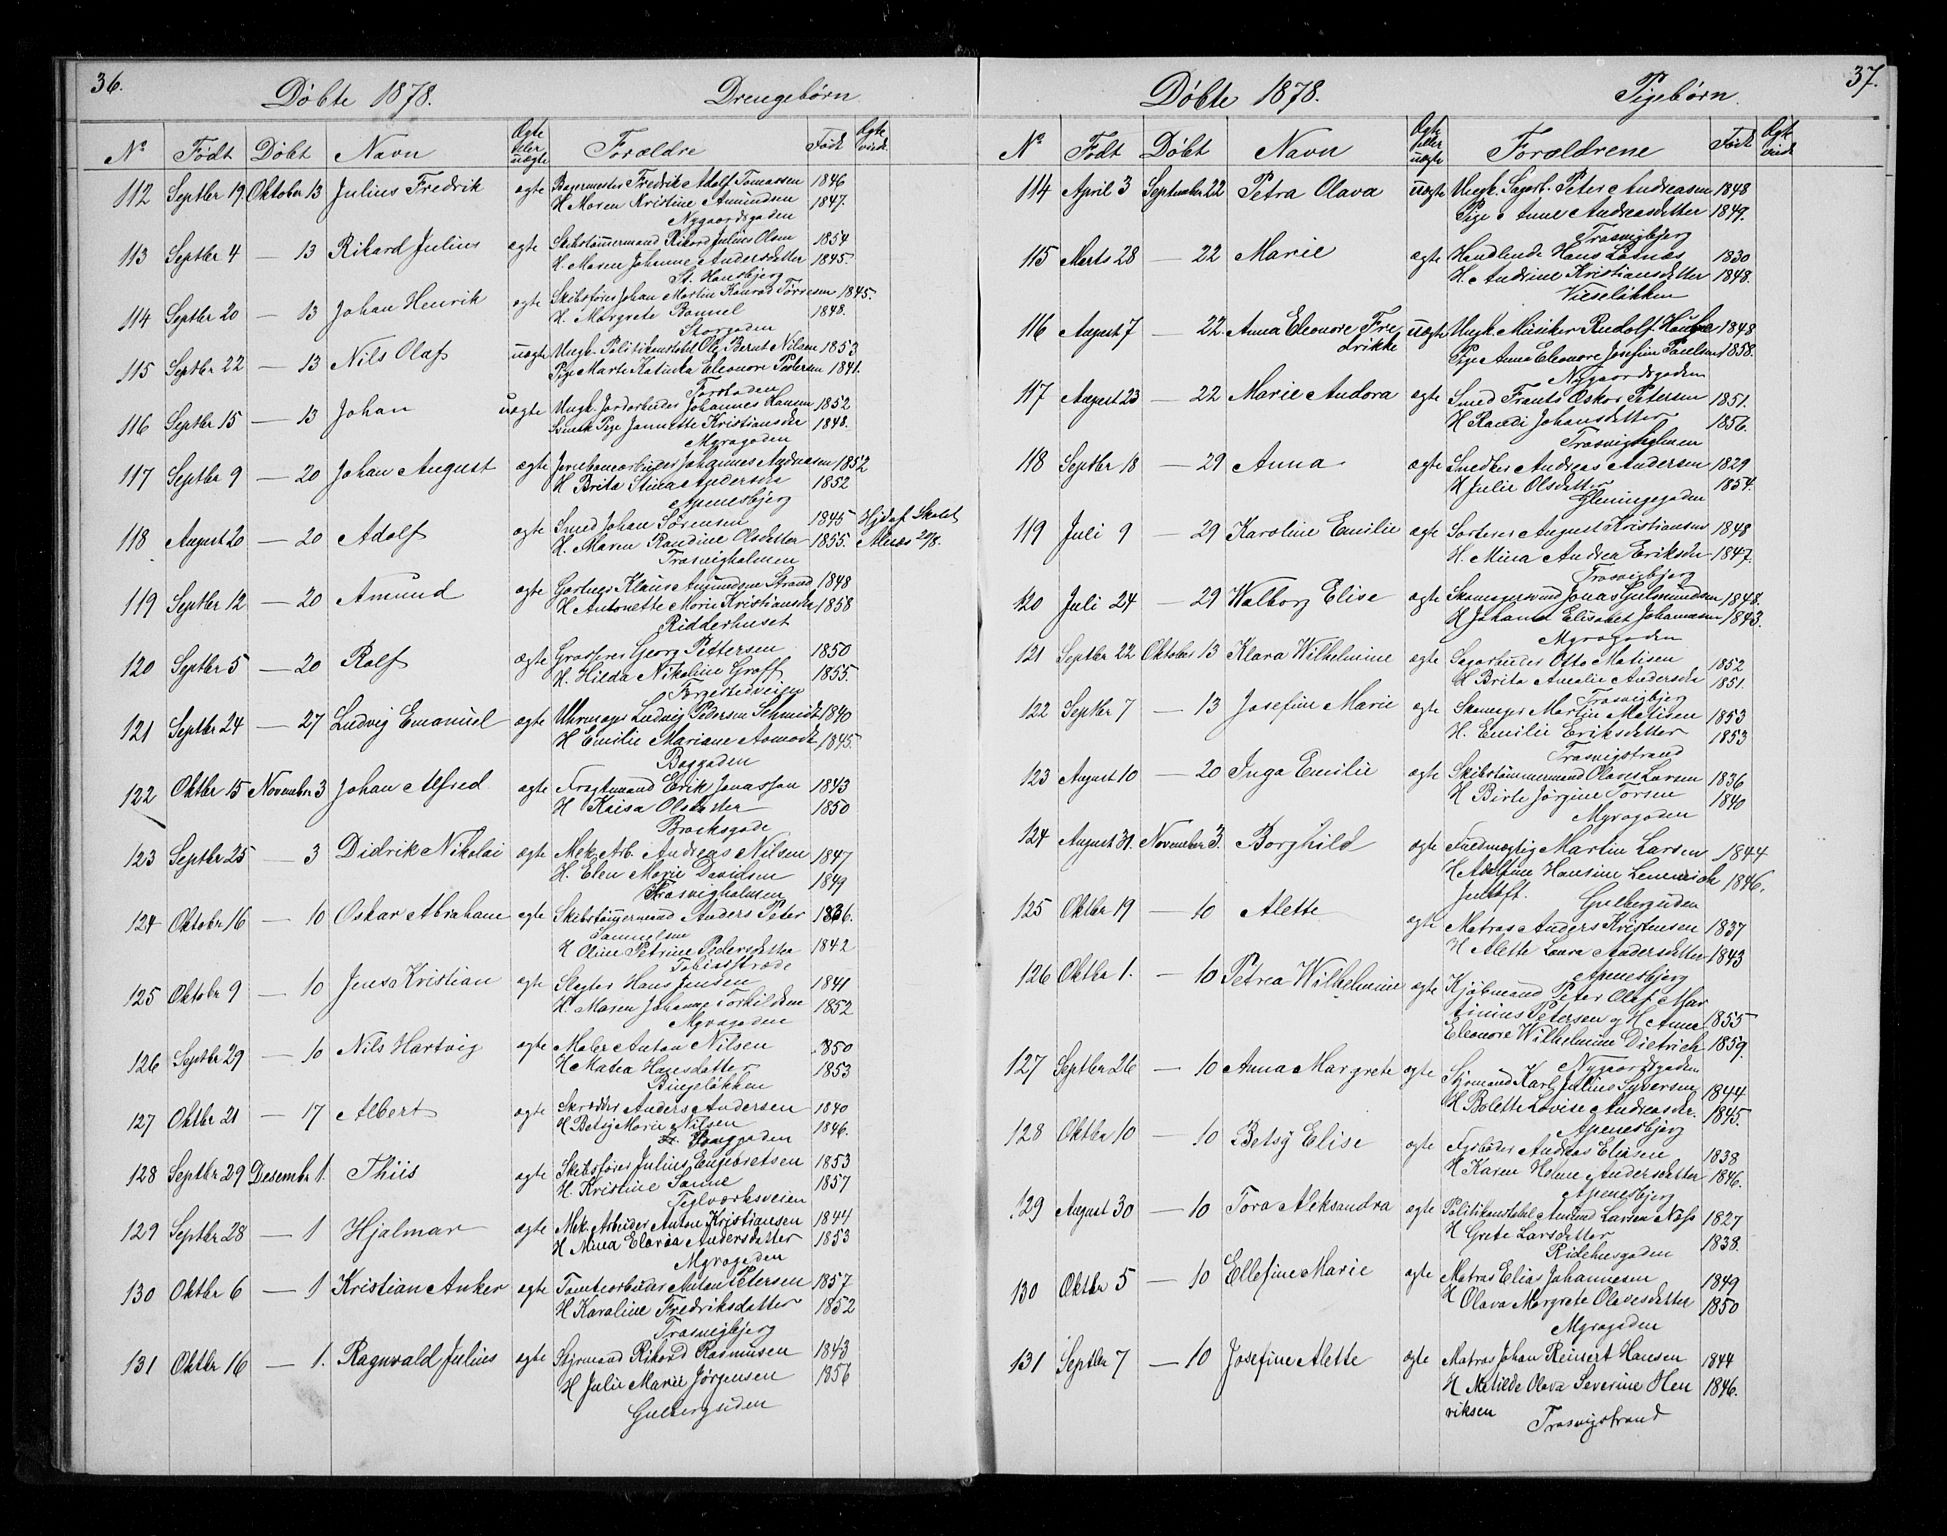 36.
Døbte 1878. Drengebørn
No Født Døbt Navn Ægte eller uægte Forældre Født
112 Septbr 19. Oktober 13 Julius Fredrik ægte Bagermester Fredrik Adolf Tomassen 1846
H Maren Kristine Amundsen 1847.
Nygaardsgaden
113 Septbr 4 — 13 Rikard Julius ægte Skibstømmermand Rikard Julius Olsen 1854
H. Maren Johanne Andersdatter 1845.
St. Hansbjerg
114 Septbr 20 — 13 Johan Henrik ægte Skibsfører Johan Martin Konrad Tørresen 1845.
H. Margrete Bommel 1848.
Storgaden
115 Septbr 22 — 13 Nils Olaf uægte Ungk. Politikonstabel Ole Bernt Nilsen 1853
Pige Marte Katinka Eleonore Pedersen 1841.
Forstaden
116 Septbr 15 — 13 Johan uægte Ungk. Jordarbeider Johannes Hansen 1852
Svensk Pige Jannette Kristiansdr 1848.
Myragaden
117 Septbr 9 — 20 Johan August ægte Jernbanearbeider Johannes Andreasen 1852
H Brita Stina Andersdr 1852
Apenesbjerg
118 August 20 — 20 Adolf ægte Smed Johan Sørensen 1845 Hjd af Skolet
H. Maren Randine Olsdatter 1855.
Trosvigholmen
119 Septbr 12 — 20 Amund ægte Gartner Klaus Amundsen Strand 1848
H Antonette Marie Kristiansdr 1858
Ridderhuset
120 Septbr 5 — 20 Rolf ægte Grosserer Georg Pettersen 1850
H. Hilda Nikoline Groff 1855.
121 Septbr 24 — 27 Ludvig Emanuel ægte Uhrmager Ludvig Pedersen Schmidt 1840
H Emilie Mariane 1845.
Baggaden
122 Oktbr 15 November 3 Johan Alfred ægte Fragtmand Erik Jonasson 1843
H Kaisa Olsdatter 1850
Brocksgade
123 Septbr 25 — 3 Didrik Nikolai ægte Mek. Arb. Andreas Nilsen 1847
H. Elen Marie Davidsen 1849
Trosvigholmen
124 Oktobr 16 — 10 Oskar Abraham ægte Skibstømmermand Anders Peter 1836.
Samuelsen
H Oline Petrine Pedersdatter 1842
Tobiasstræde
125 Oktobr 9 — 10 Jens Kristian ægte Slagter Hans Jensen 1841
H. Maren Johanne Torkildsen 1852
Myragaden
126 Septbr 29 — 10 Nils Hartvig ægte Maler Anton Nilsen 1850
H Matea Hansdatter 1853
Bingeløkken
127 Oktbr 21 — 17 Albert ægte Skrædder Anders Andersen 1840
H Betsy Marie Nilsen 1846.
128 Septbr 29 Desembr 1. Thiis ægte Skibsfører Julius Engebretsen 1853
H. Kristine Sanne 1857
Teglværksveien
129 Septbr 28 — 1 Hjalmar ægte Mek. Arbeider Anton Kristiansen 1844
H Mina Andersdatter 1853
Myragaden
130 Oktbr 6 — 1 Kristian Anker ægte Tomtearbeider Anton Petersen 1857
H Karoline Fredriksdatter 1852
Trosvigbjerg
131 Oktbr 16 — 1. Ragnvald Julius ægte Styrmand Rikard Rasmusen 1843
H Julie Marie Jørgensen 1856
Gulbergsiden
37.
Døbte 1878. Pigebørn.
No Født Døbt Navn Ægte eller uægte Forældrene Født
114 April 3 September 22 Petra Olava uægte Ungk. Sagarb. Peter Andreasen 1848
Pige Anne Andreasdatter 1849.
Trosvigbjerg
115 Marts 28 — 22 Marie ægte Handlende Hans 1830
H. Andrine Kristiansdatter 1848.
Vieseløkken
116 August 7 — 22. Anna Eleonore Fre uægte Ungk. Musiker Rudolf 1848
drikke Pige Anna Eleonore Josefine Poulsen 1858.
Nygaardsgaden
117 August 23 — 22 Marie Andora ægte Smed Frants Oskar Petersen 1851.
H Randi Johansdatter 1856.
Trosvigholmen
118 Septbr 18 — 29 Anna ægte Andreas Andersen 1829
H Julie Olsdatter 1854.
Gleningegaden
119 Juli 9 — 29 Karoline Emilie ægte Sorterer August Kristiansen 1848
H. Mina Andrea Eriksdr 1847.
Trosvigbjerg
120 Juli 24 — 29 Walborg Elise ægte Skomagersvend Jonas Gulmundsen 1848.
H Johanne Elisabet Johannesen 1843.
Myragaden
121 Septbr 22 Oktober 13 Klara Wilhelmine ægte Sagarbeider Otto Matisen 1852
H Brita Amalie Andersdr 1851.
Trosvigbjerg
122 Septbr 7 — 13 Josefine Marie ægte Skomager Martin Matisen 1853
H. Emilie Eriksdatter 1853
Trosvigstrand
123 August 10 — 20 Inga Emilie ægte Skibstømmermand Olaves Larsen 1836
H Birte Jørgine Torsen 1840
Myragaden
124 August 31. November 3. Borghild ægte Fuldmægtig Martin Larsen 1844
H Adolfine Hansine Lennerich 1846.
Gulbergsiden
125 Oktbr 19 — 10 Alette ægte Matros Anders Kristensen 1837
H Alette Laura Andersdatter 1843
Apenesbjerg
126 Oktbr 1. — 10 Petrea Wilhelmine ægte Kjøbmand Peter Olaf Mar
tinius Petersen og H Anne 1855
Eleonore Wilhelmine Dietrich 1859.
Nygaardsgaden
127 Septbr 26 — 10 Anna Margrete ægte Styrmand Karl Julius Syversen 1844
H Bolette Lovise Andreasdr. 1845.
Apenesbjerg
128 Oktbr 10 — 10 Betsy Elise ægte Fyrbøder Andreas Eliasen 1838
H Karen Helene Andersdatter 1846.
Apenesbjerg
129 August 30 — 10 Tora Aleksandra ægte Politikonstabel Amund Larsen Næss 1827
H Grete Larsdatter 1838.
Ridehusgaden
130 Oktbr 5 — 10 Ellefine Marie ægte Matros Elias Johannesen 1849
H Olava Margrete Olavesdatter 1850
Myragaden
131 Septbr 7 — 10 Josefine Alette ægte Matros Johan Reinert Hansen 1844
H Matilde Olava Severine Hen 1846.
riksen
Trosvigstrand